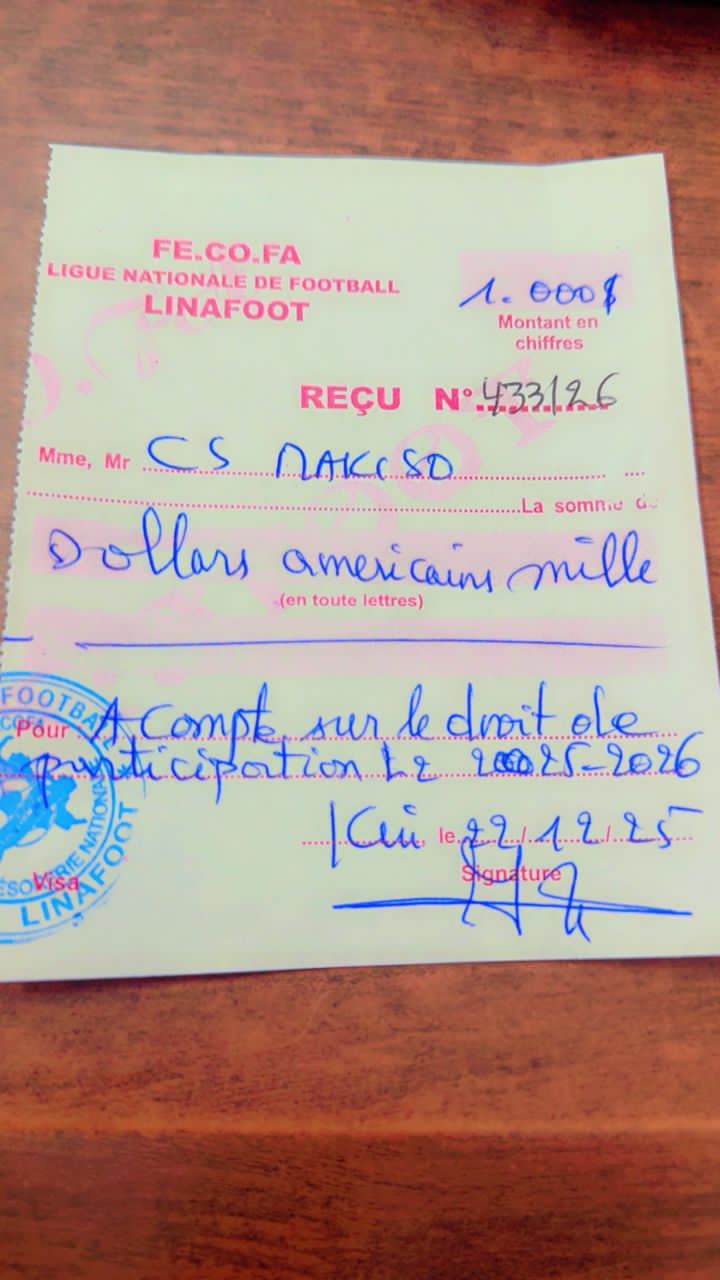 FE.CO.FA
LIGUE NATIONALE DE FOOTBALL
LINAFOOT
1.000$
Montant en
chiffres
REÇU N° 433/26
Mme, Mr CS MAKISO
La somme de
Dollars americains mille
(en toute lettres)
Pour : A compte sur le droit de
participation L2 2025-2026
Kin, le 22/12/25
Signature
Visa
FOOTBA
NATIONA
LINAFOOT